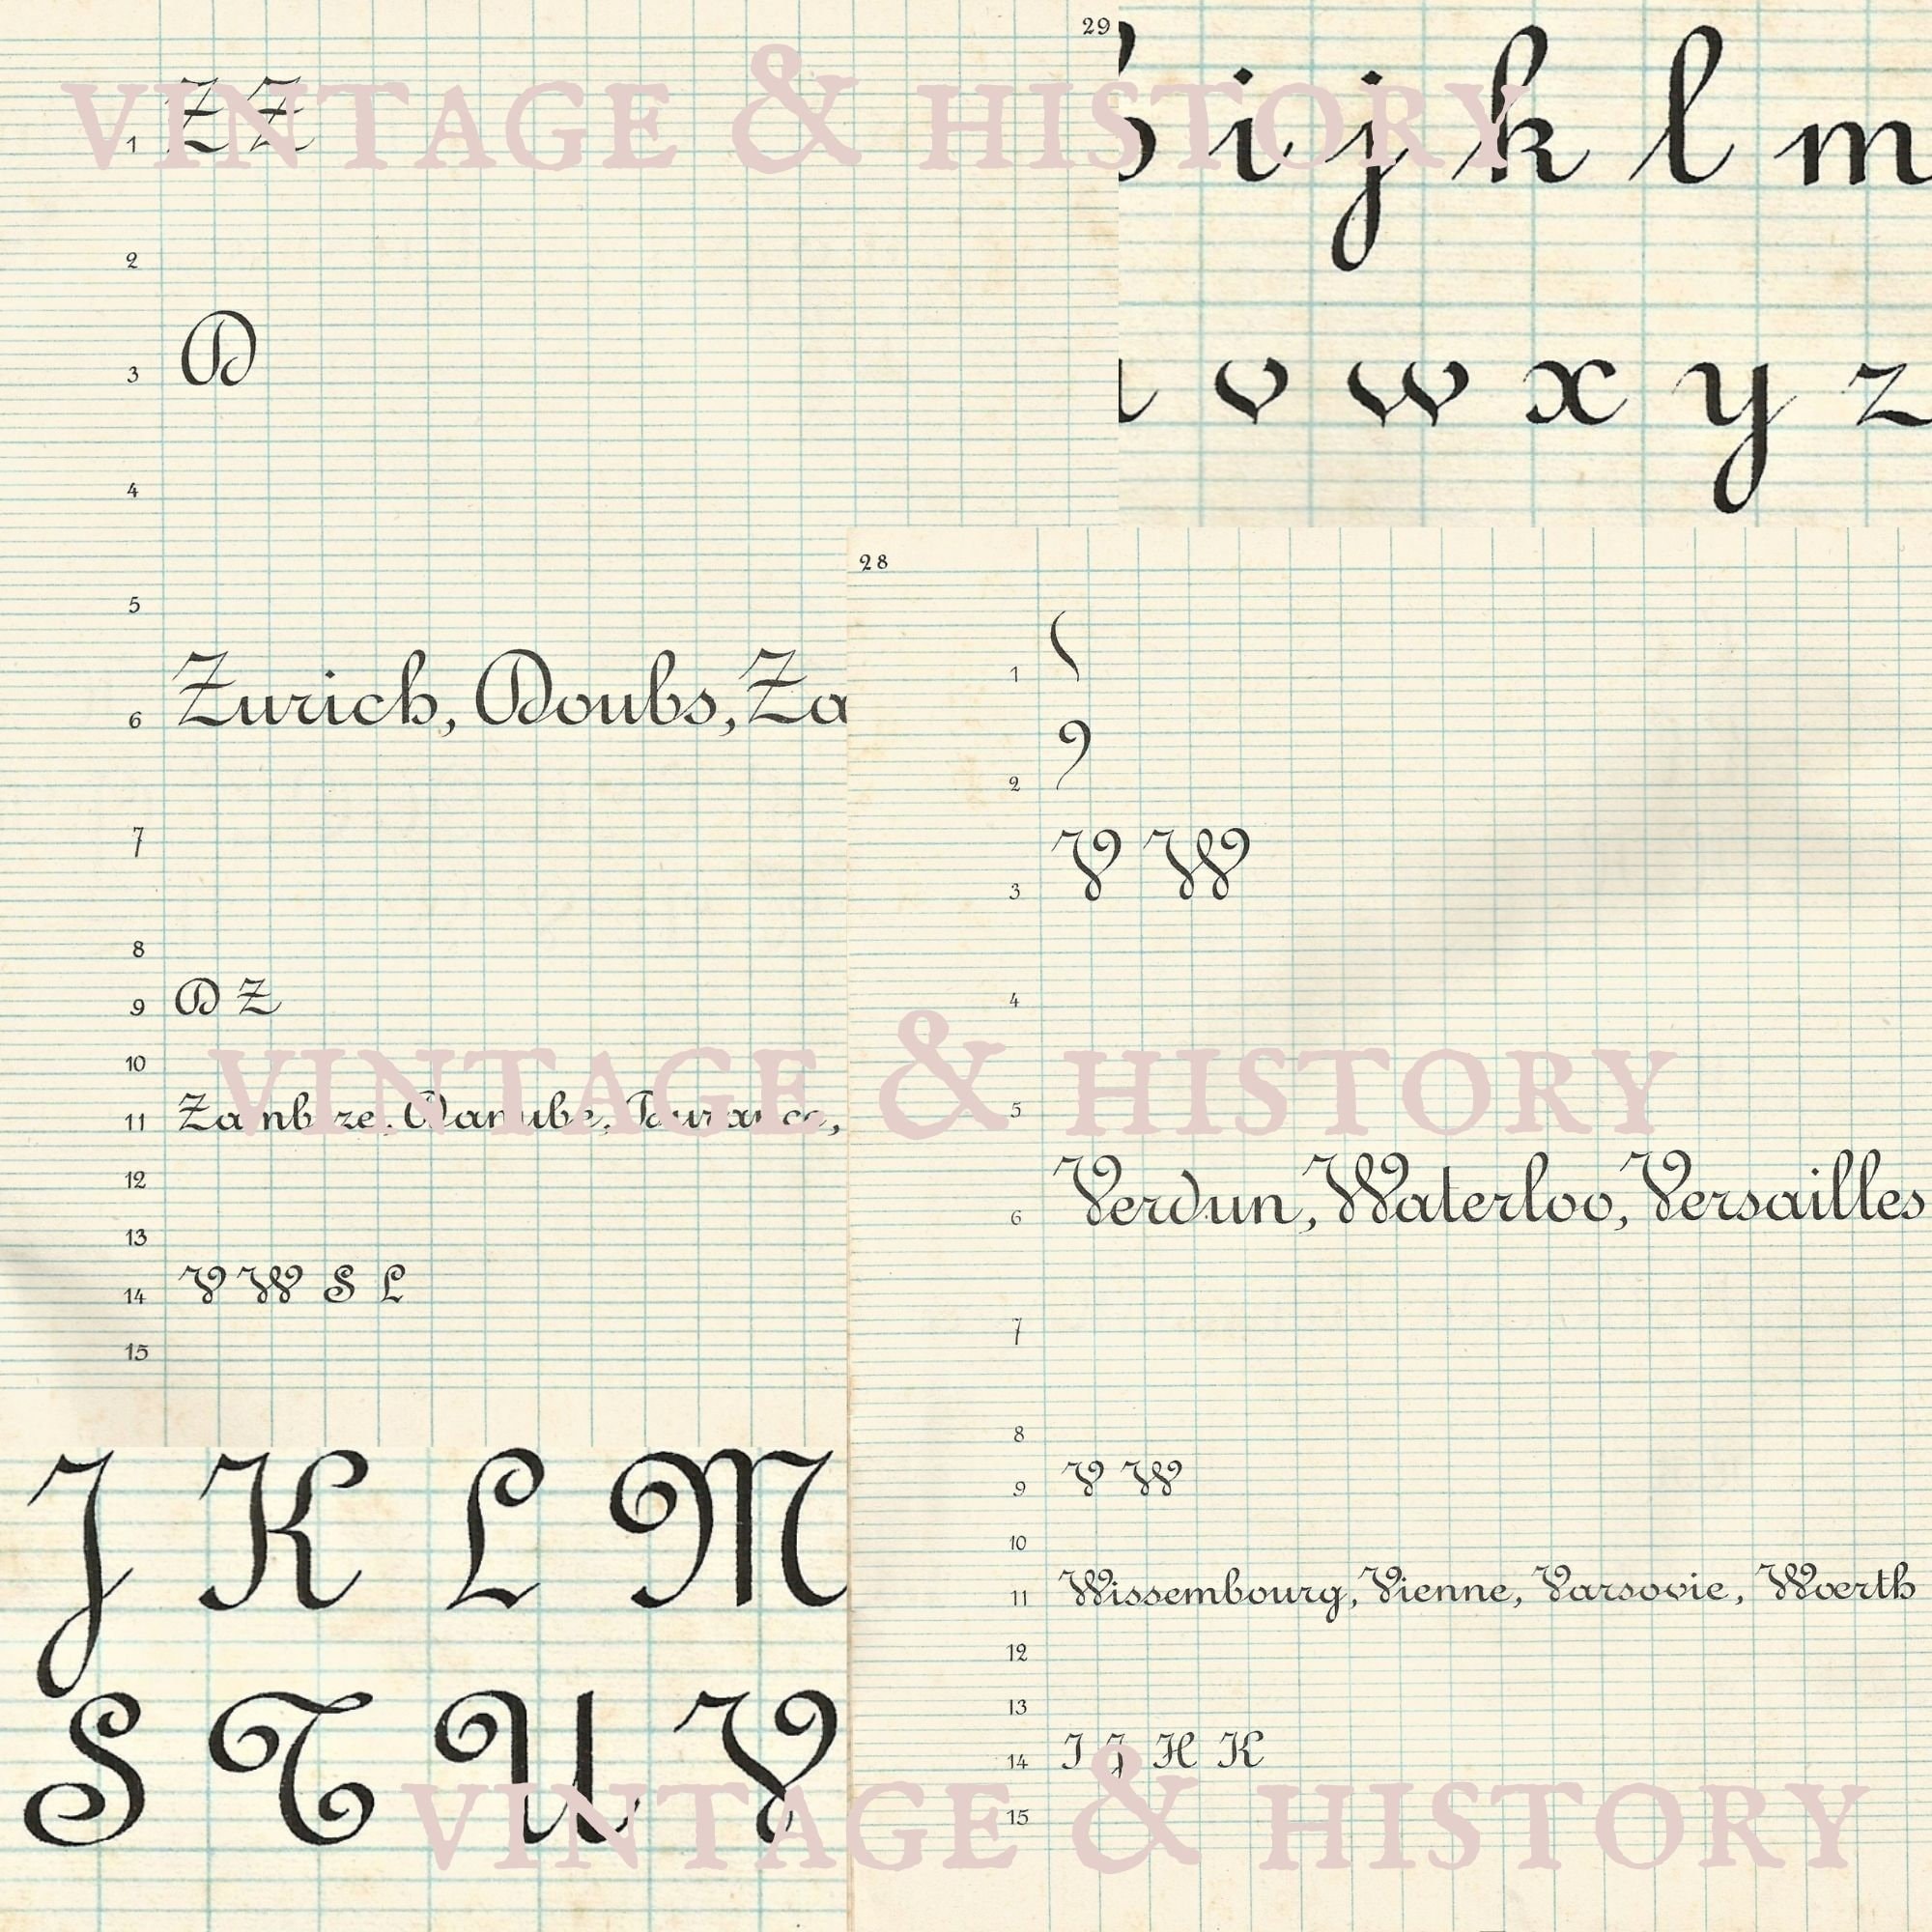 VINTAGE & HISTORY
29
1 Z Z
2
3 D
4
5
6 Zurich, Doubs, Za
7
8
9 D Z
10
11 Zambèze, Danube, Touraine,
12
13
14 V W S L
15
i j k l m
v w x y z
28
1
2
3 V W
4
5
6 Verdun, Waterloo, Versailles
7
8
9 V W
10
11 Wissembourg, Vienne, Varsovie, Wœrth
12
13
14 I J H K
15
VINTAGE & HISTORY
J K L M
S T U V
VINTAGE & HISTORY